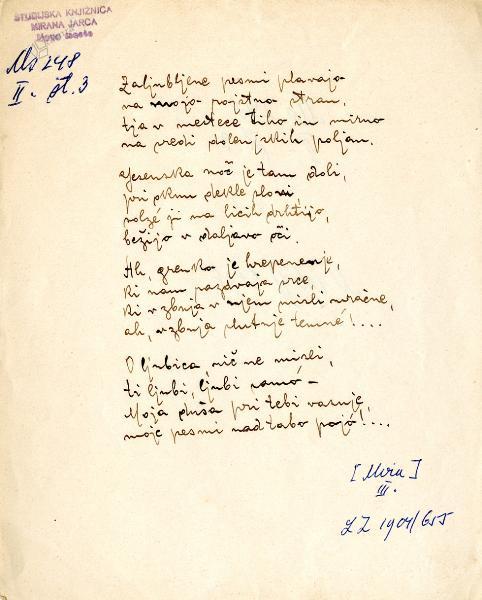 ŠTUDIJSKA KNJIŽNICA
MIRANA JARCA
Novo mesto
Ms 248
II. št. 3
Zaljubljene pesmi plavajo
na svojo pojstno stran,
tja v mestece tiho in mirno
na sredi dolenjskih poljan.
Jesenska noč je tam doli,
pri oknu dekle sloni,
solzé ji na licih drhtijo,
bežijo v daljavo oči.
Ah, grenko je hrepenenje,
ki nam razdvaja srce,
ki vzbuja v njem misli mračne,
ah, vzbuja slutnje temné!....
O ljubica, nič ne misli,
ti ljubi, ljubi samó –
Moja duša pri tebi vasuje,
moje pesmi nad tabo pojó!....
III.
LZ 1904/655